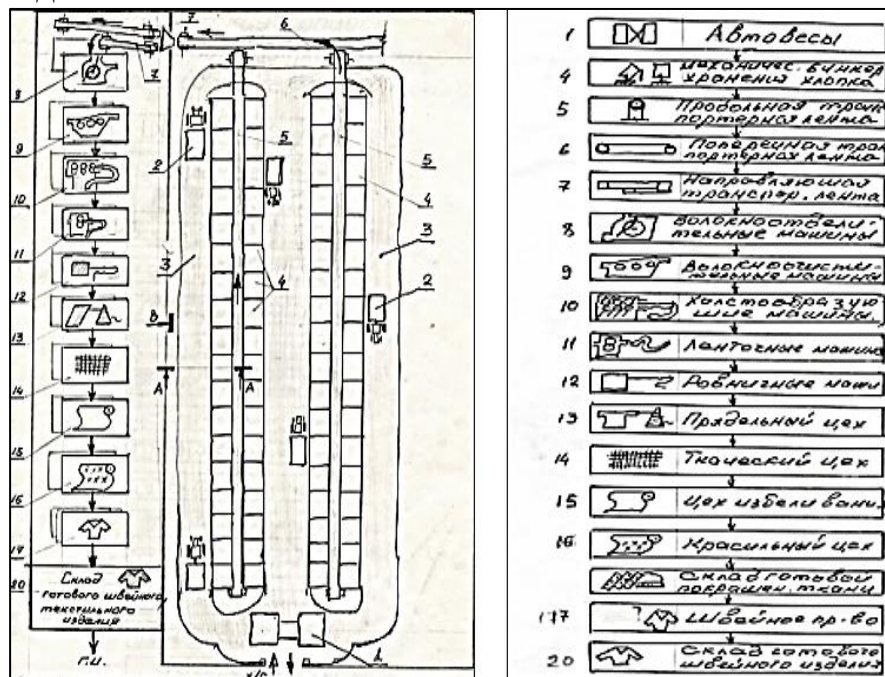 7
6
7
8
9
10
11
12
13
14
15
16
17
20
2
5
5
4
3
3
4
2
8
А
А
1
Склад
готового швейного
текстильного
изделия
г.и.
х/с
1 Автовесы
4 механичес. бункер
хранения хлопка
5 Продольная тран
портерная лента
6 Поперечная тран
портерная лента
7 Направляющая
транспор. лента
8 Волокноотдели-
тельные машины
9 Волокноочисти-
тельные машины
10 Холстообразую
щие машины.
11 Ленточные машин
12 Ровничные маши
13 Прядельный цех
14 Ткаческий цех
15 Цех избеливани
16 Красильный цех
Склад готовой
покрашен. ткани
17 Швейное пр-во
20 Склад готового
швейного изделия